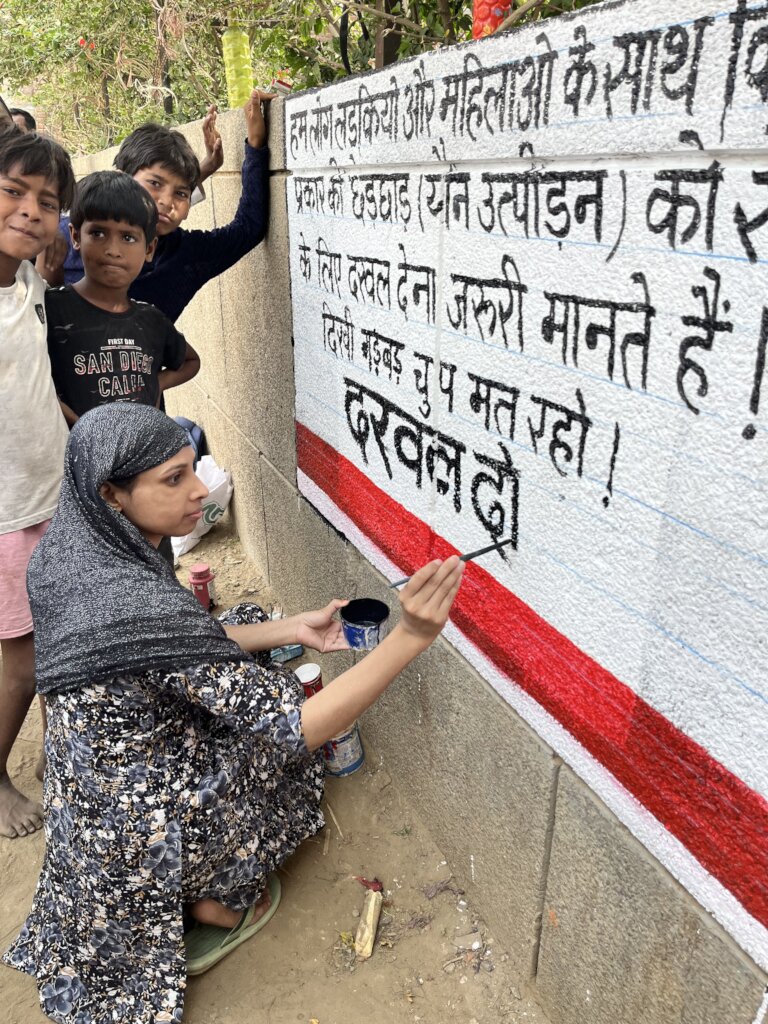 हम लोग लड़कियो और महिलाओ के साथ
प्रकार की छेड़छाड़ (यौन उत्पीड़न) को
के लिए दखल देना जरूरी मानते हैं !
दिखी गड़बड़ चुप मत रहो !
दखल दो
FIRST DAY
SAN DIEGO